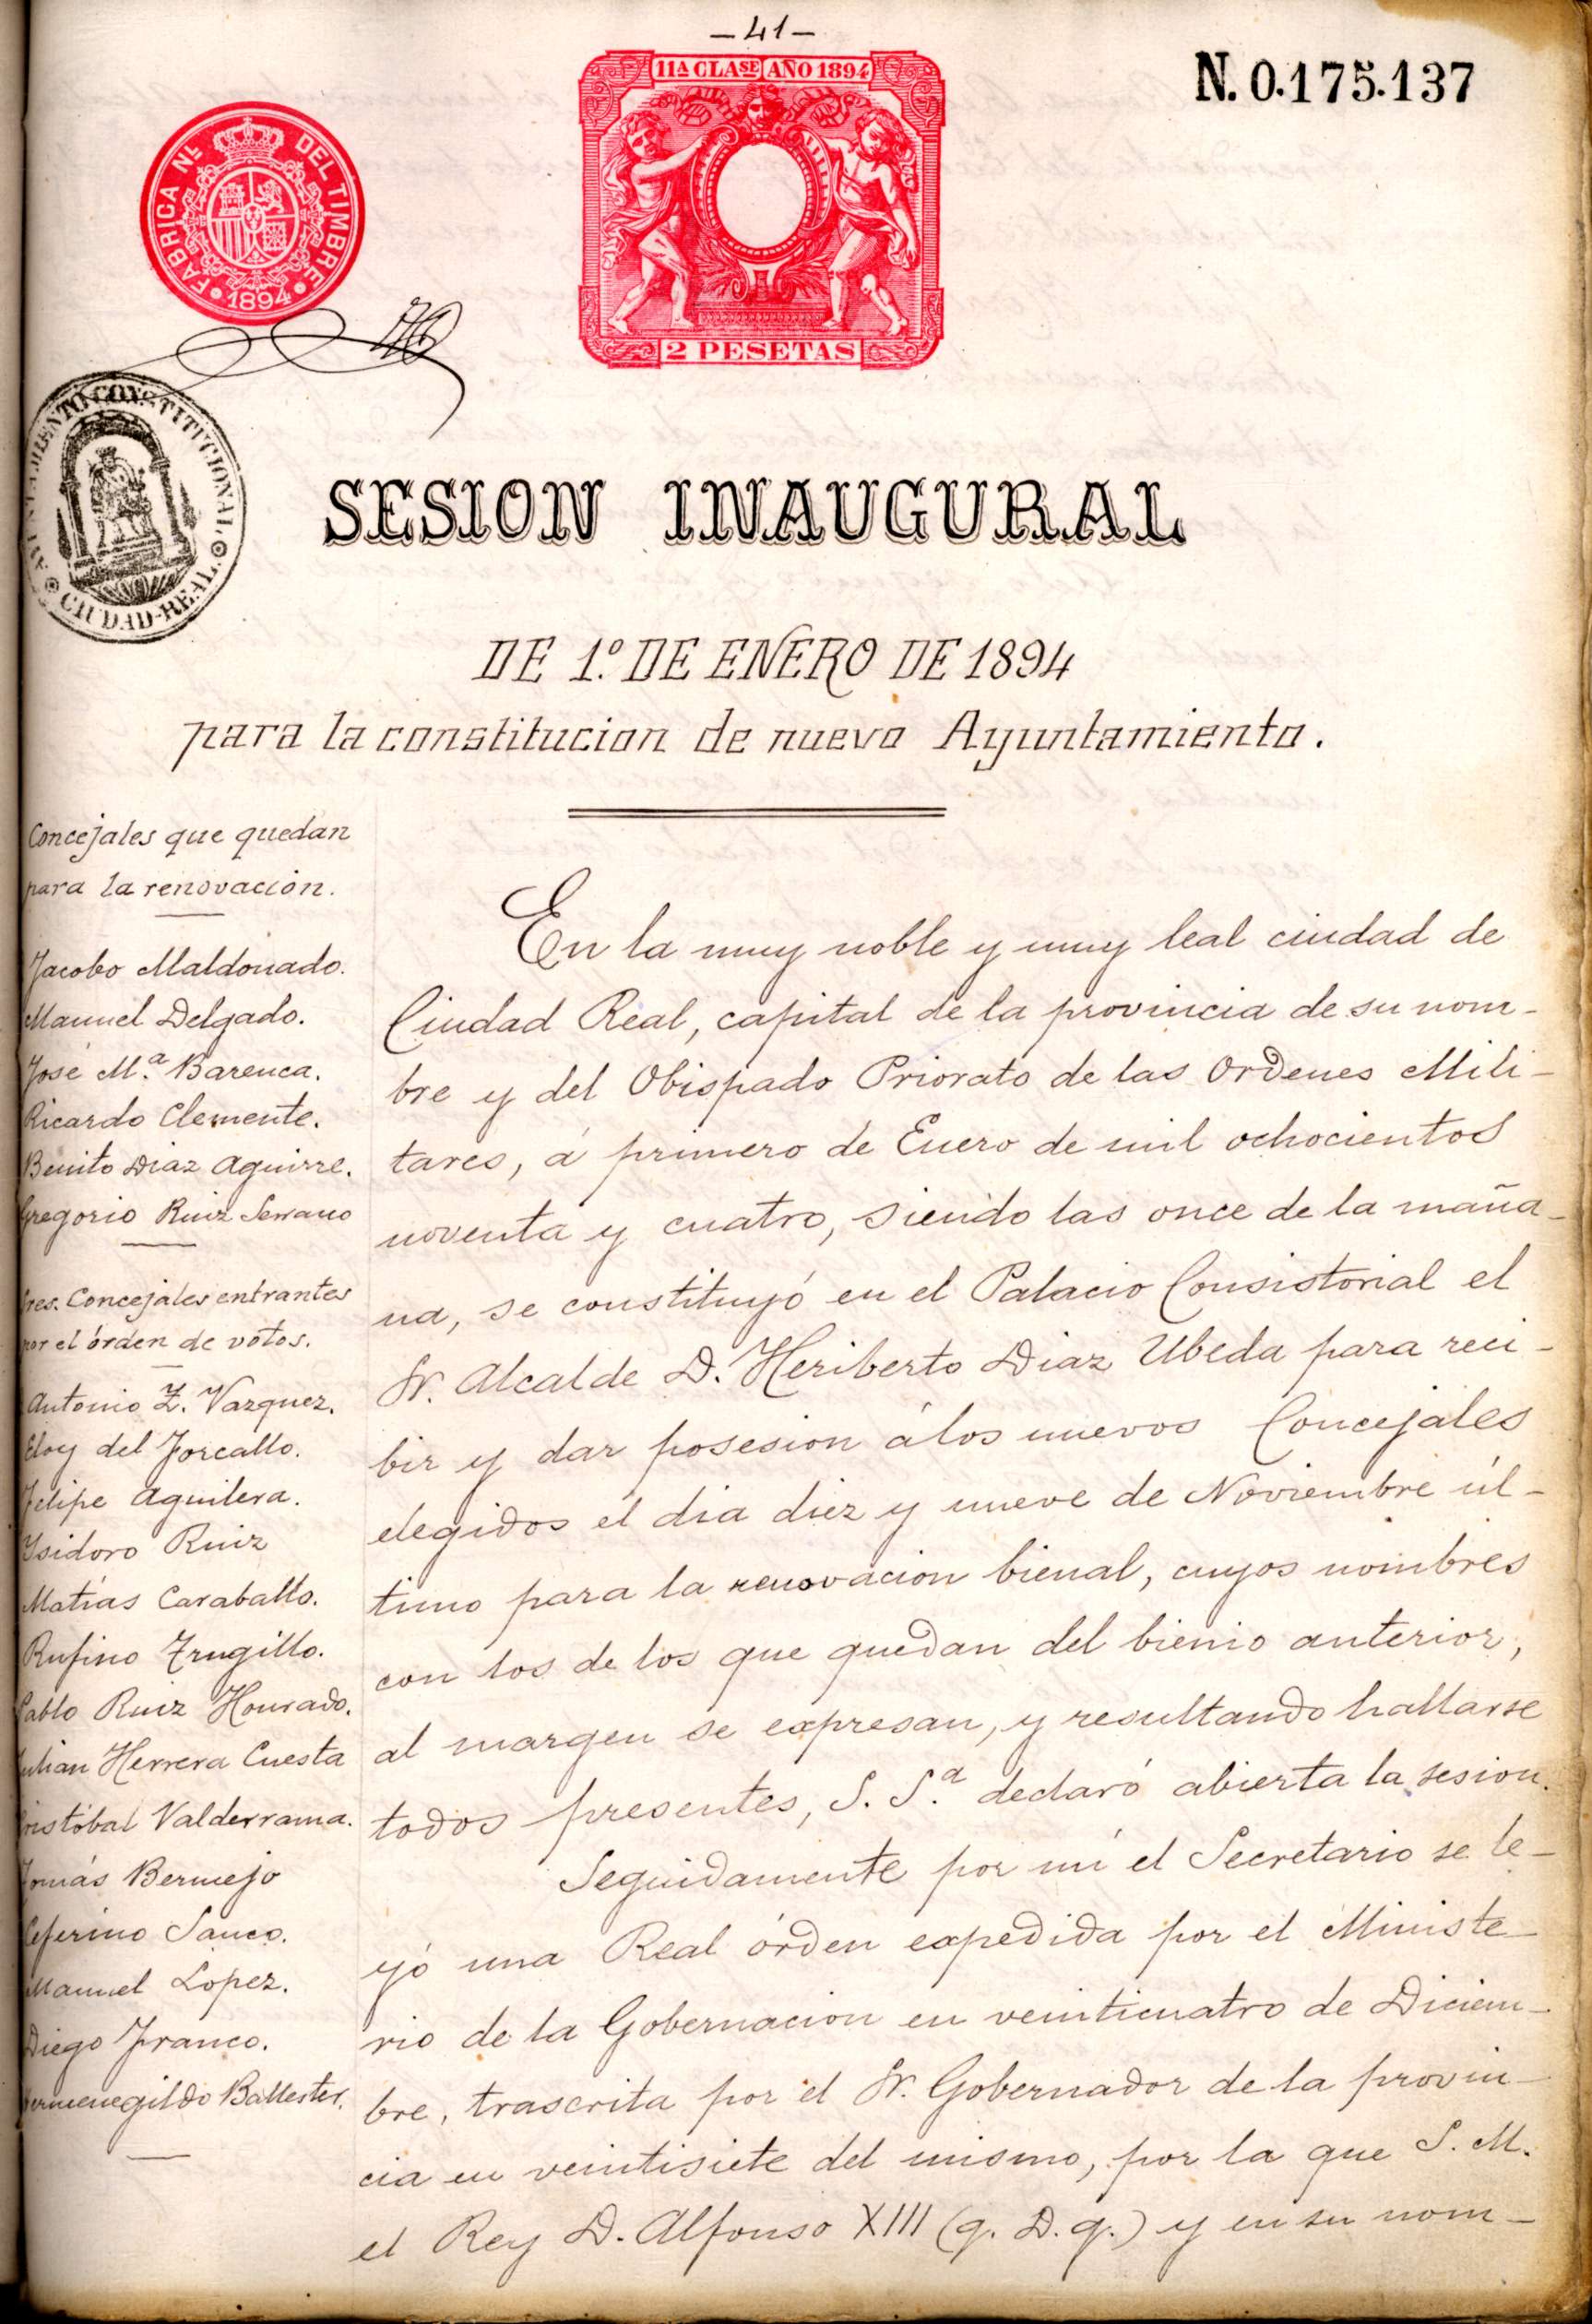 — 41 —
11ª CLASE AÑO 1894
N. 0.175.137
FABRICA Nᴸ DEL TIMBRE
1894
2 PESETAS
AYUNTAMIENTO CONSTITUCIONAL
CIUDAD-REAL
SESION INAUGURAL
DE 1.º DE ENERO DE 1894
para la constitucion de nuevo Ayuntamiento.
Concejales que quedan
para la renovación.
Jacobo Maldonado.
Manuel Delgado.
José M.ª Barenca.
Ricardo Clemente.
Benito Diaz Aguirre.
Gregorio Ruiz Serrano
Sres. Concejales entrantes
por el órden de votos.
Antonio Z. Vazquez.
Eloy del Forcallo.
Felipe Aguilera.
Ysidoro Ruiz
Matías Caraballo.
Rufino Trugillo.
Pablo Ruiz Honrado.
Julian Herrera Cuesta
Cristóbal Valderrama.
Tomás Bermejo
Ceferino Sauco.
Manuel López.
Diego Franco.
Hermenegildo Ballester.
En la muy noble y muy leal ciudad de
Ciudad Real, capital de la provincia de su nom-
bre y del Obispado Priorato de las Ordenes Mili-
tares, á primero de Enero de mil ochocientos
noventa y cuatro, siendo las once de la maña-
na, se constituyó en el Palacio Consistorial el
Sr. Alcalde D. Heriberto Diaz Ubeda para reci-
bir y dar posesion á los nuevos Concejales
elegidos el dia diez y nueve de Noviembre úl-
timo para la renovacion bienal, cuyos nombres
con los de los que quedan del bienio anterior,
al margen se expresan, y resultando hallarse
todos presentes, S. S.ª declaró abierta la sesion.
Seguidamente por mí el Secretario se le-
yó una Real órden expedida por el Ministe-
rio de la Gobernacion en veinticuatro de Diciem-
bre, trascrita por el Sr. Gobernador de la provin-
cia en veintisiete del mismo, por la que S. M.
el Rey D. Alfonso XIII (q. D. g.) y en su nom-